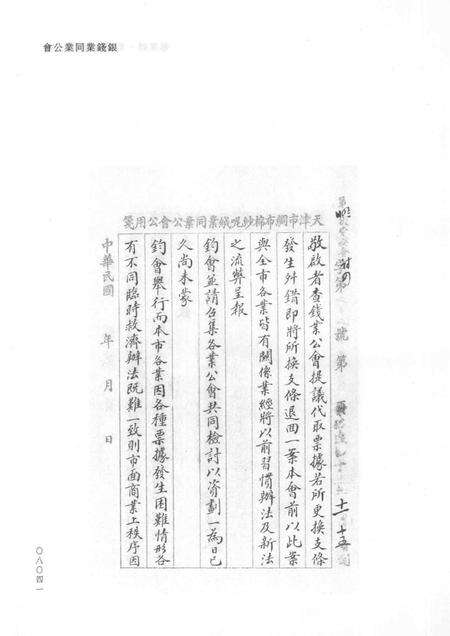 銀錢業同業公會
天津市綢布棉紗呢絨業同業公會公用箋
號第
十一 十五
敬啟者查錢業公會提議代取票據若所更換支條
發生舛錯即將所換支條退回一案本會前以此案
與全市各業皆有關係業經將以前習慣辦法及新法
之流弊呈報
鈞會並請召集各業公會共同檢討以資劃一為日已
久尚未蒙
鈞會舉行而本市各業因各種票據發生困難情形各
有不同臨時救濟辦法既難一致則市面商業上秩序因
中華民國 年 月 日
〇八〇四一